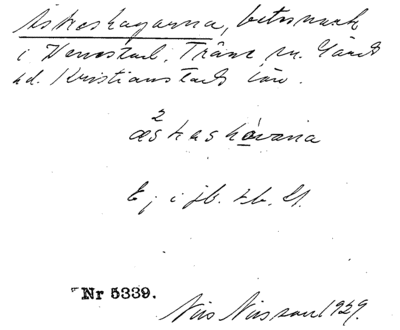 Askeshagarna, betesmark
i Vennestad, Träne sn. Gärds
hd. Kristianstads län.
2
æskashávana
Ej i jb. tb. Ll.
Nr 5339.
Nils Nilsson 1929.